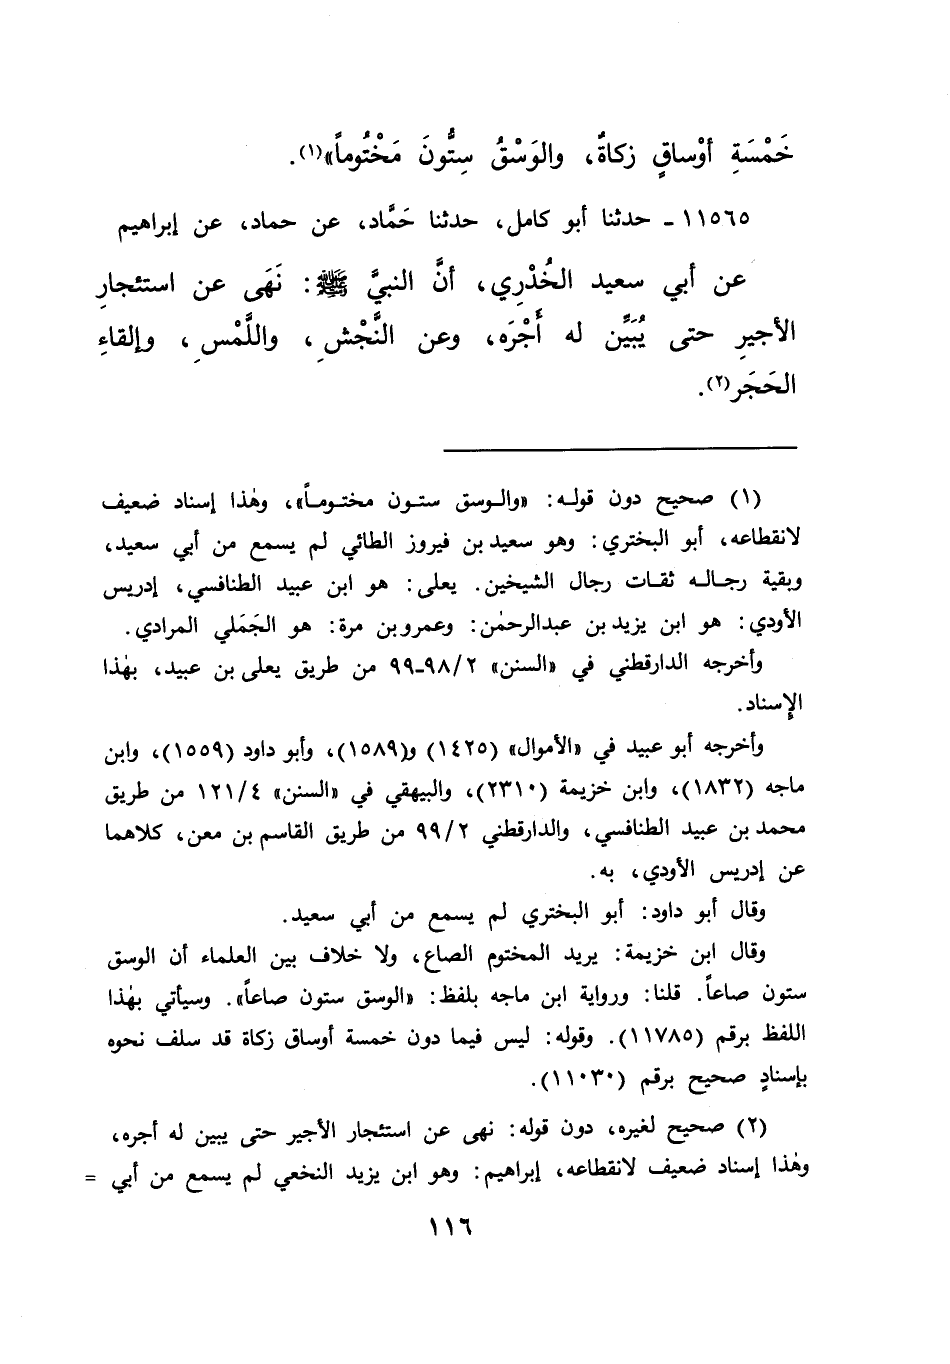 خَمْسَةِ أوْساقٍ زكاةٌ، والوَسْقُ سِتُّونَ مَخْتُوماً»(١).
١١٥٦٥ ـ حدثنا أبو كامل، حدثنا حَمَّاد، عن حماد، عن إبراهيم
عن أبي سعيد الخُدْرِي، أنَّ النبيَّ ﷺ: نَهَى عن استئجارِ
الأجيرِ حتى يُبَيَّن له أَجْرَه، وعن النَّجْشِ، واللَّمْسِ، وإلقاءِ
الحَجَرِ(٢).
(١) صحيح دون قوله: «والوسق ستون مختوماً»، وهٰذا إسناد ضعيف
لانقطاعه، أبو البختري: وهو سعيد بن فيروز الطائي لم يسمع من أبي سعيد،
وبقية رجاله ثقات رجال الشيخين. يعلى: هو ابن عبيد الطنافسي، إدريس
الأودي: هو ابن يزيد بن عبدالرحمٰن: وعمرو بن مرة: هو الجَمَلي المرادي.
وأخرجه الدارقطني في «السنن» ٩٨/٢-٩٩ من طريق يعلى بن عبيد، بهٰذا
الإسناد.
وأخرجه أبو عبيد في «الأموال» (١٤٢٥) و(١٥٨٩)، وأبو داود (١٥٥٩)، وابن
ماجه (١٨٣٢)، وابن خزيمة (٢٣١٠)، والبيهقي في «السنن» ١٢١/٤ من طريق
محمد بن عبيد الطنافسي، والدارقطني ٩٩/٢ من طريق القاسم بن معن، كلاهما
عن إدريس الأودي، به.
وقال أبو داود: أبو البختري لم يسمع من أبي سعيد.
وقال ابن خزيمة: يريد المختوم الصاع، ولا خلاف بين العلماء أن الوسق
ستون صاعاً. قلنا: ورواية ابن ماجه بلفظ: «الوسق ستون صاعاً». وسيأتي بهٰذا
اللفظ برقم (١١٧٨٥). وقوله: ليس فيما دون خمسة أوساق زكاة قد سلف نحوه
بإسنادٍ صحيح برقم (١١٠٣٠).
(٢) صحيح لغيره، دون قوله: نهى عن استئجار الأجير حتى يبين له أجره،
وهٰذا إسناد ضعيف لانقطاعه، إبراهيم: وهو ابن يزيد النخعي لم يسمع من أبي =
١١٦